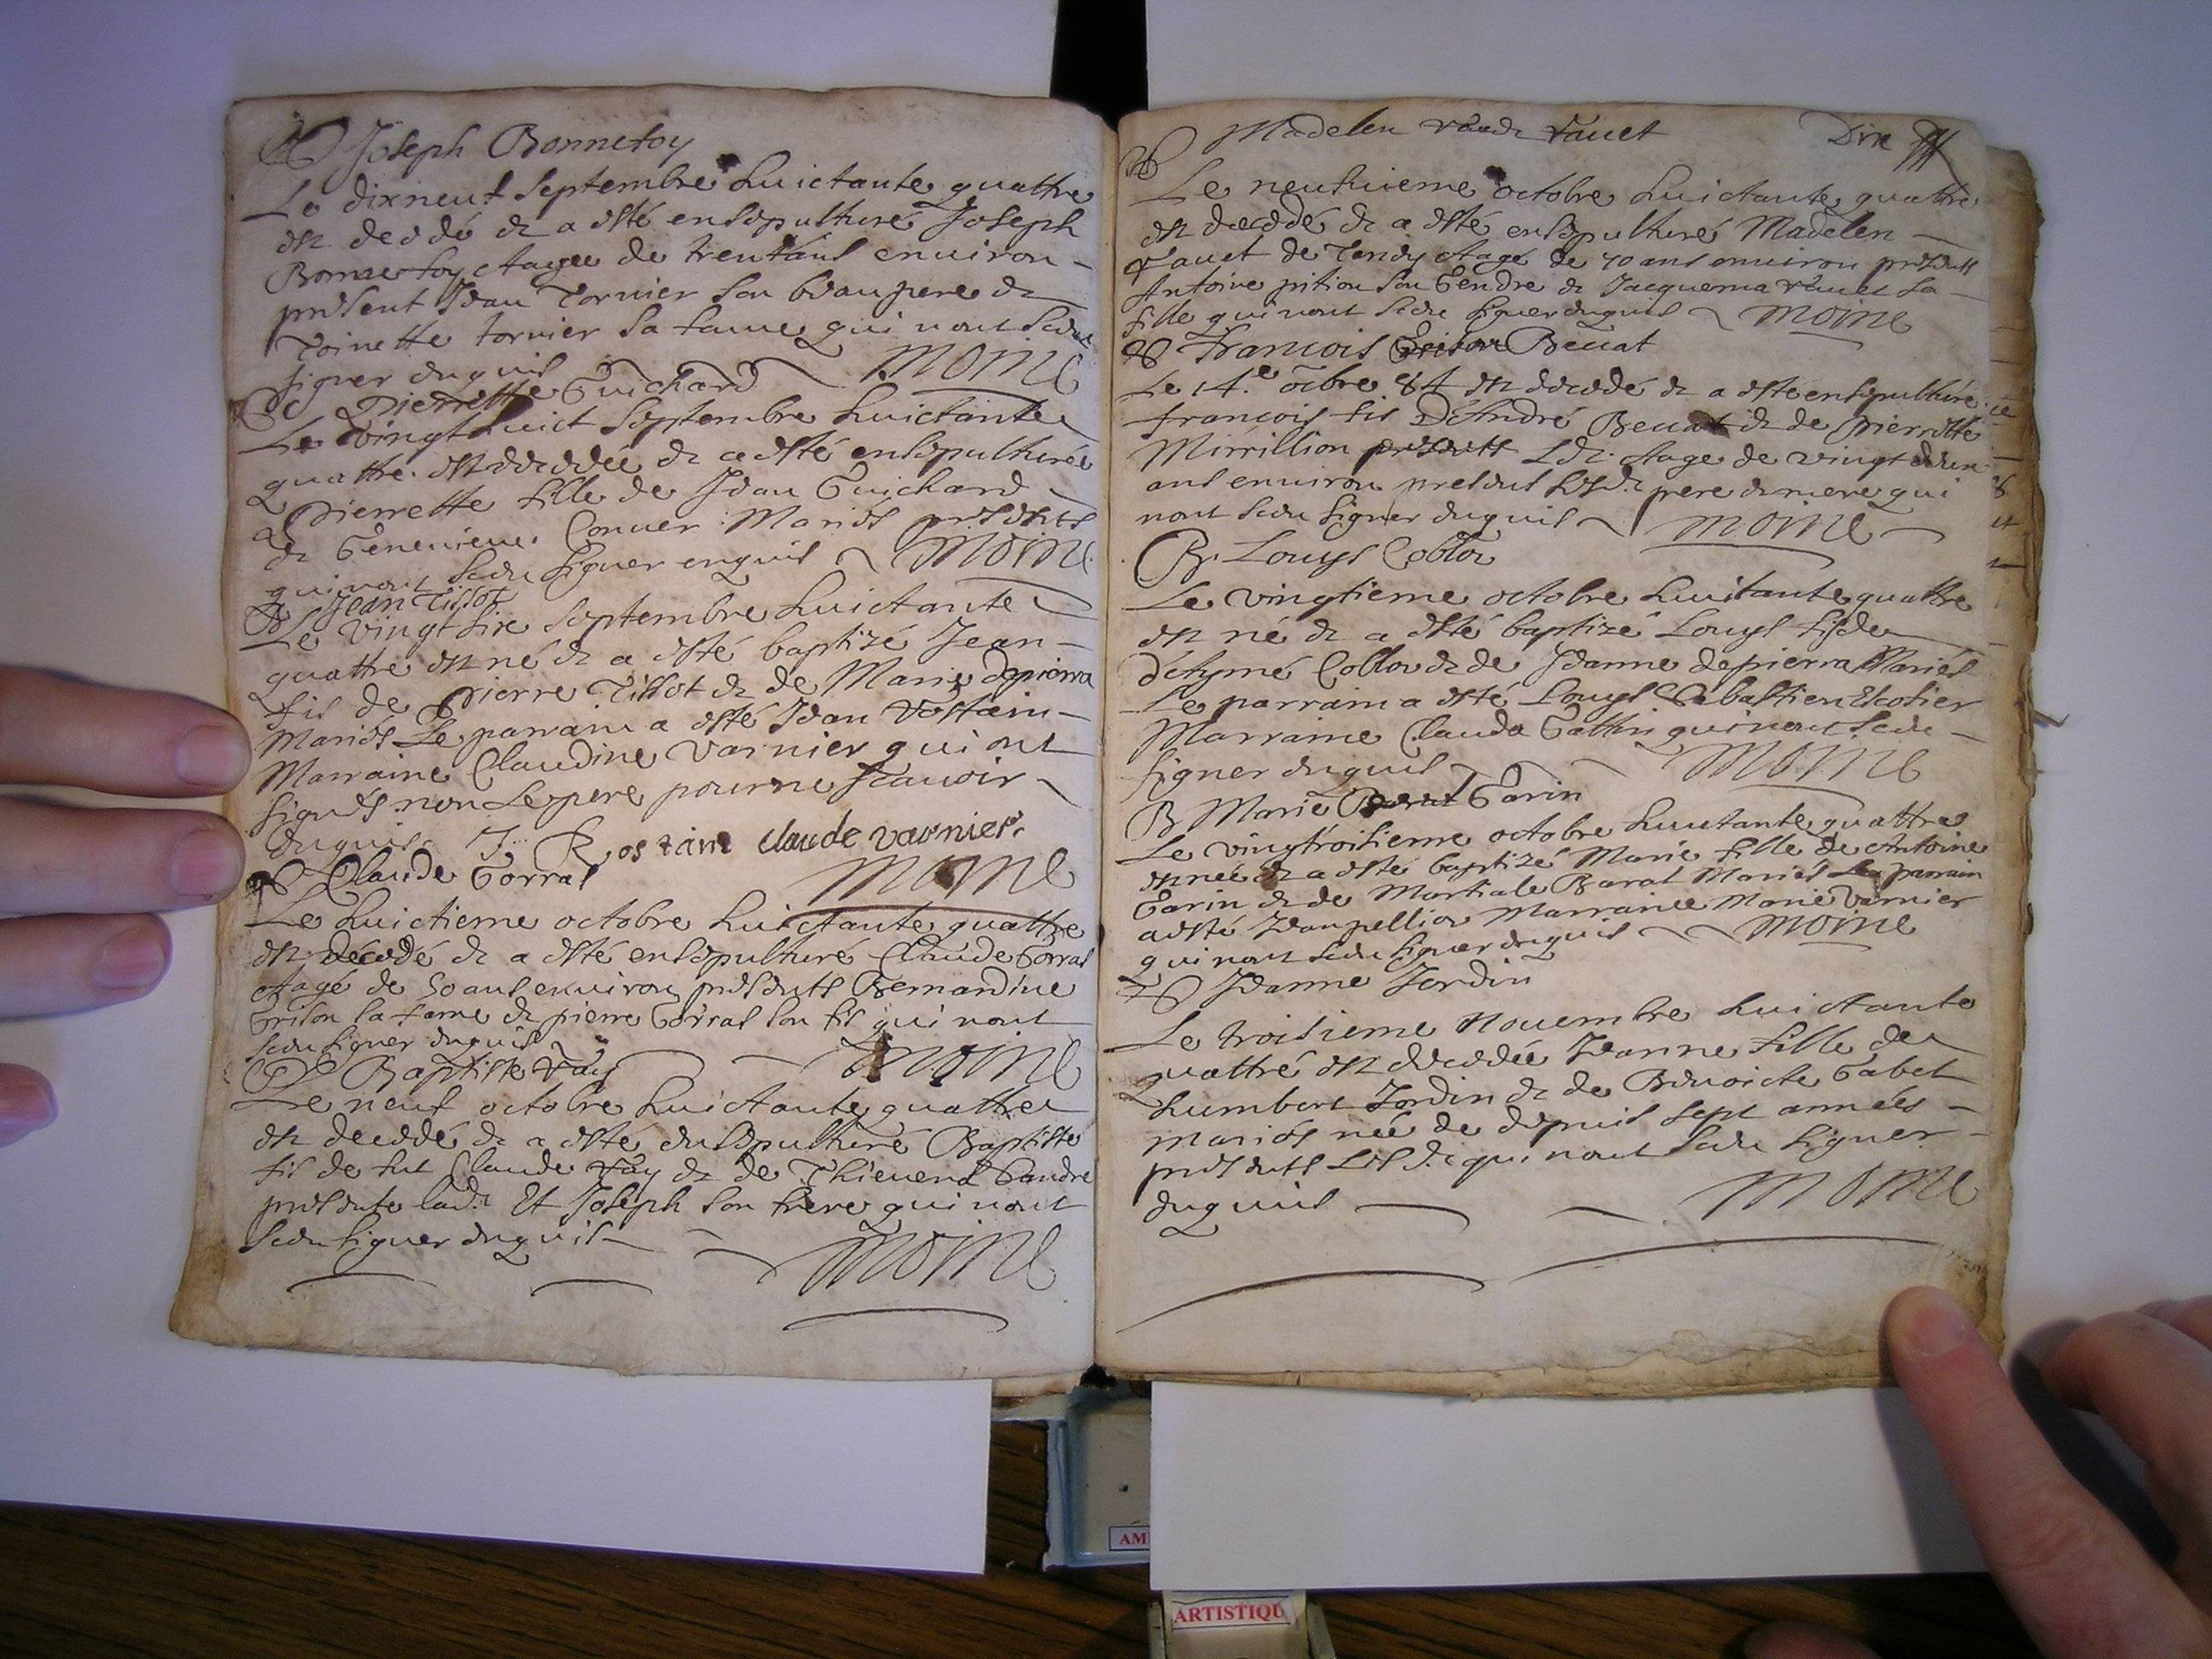 Joseph Bonnefoy
Le dixneuf septembre huictante quattre
est decedé et a esté ensepulturé Joseph
Bonnefoy aagee de trentans environ
present Jean Tornier son beaupere et
Toinette tornier sa fame qui n'ont sceu
signer enquis Moine
Pierrette Guichard
Le vingthuict septembre huictante
quattre est decedée et a esté ensepulturée
Pierrette fille de Jean Guichard
et Genevieve Conuer Mariés presents
qui n'ont sceu signer enquis Moine
B Jean Tissot
Le vingt sixe septembre huictante
quattre est né et a esté baptizé Jean
fis de Pierre Tissot et de Marie depierra
Mariés Le parrain a esté Jean Rostain
Marraine Claudine Varnier qui ont
signés non Le pere pour ne scauoir
enquis J Rostain claude varnier
Claude Gorrat Moine
Le huictieme octobre huictante quattre
est décedé et a esté ensepulturé Claude Gorrat
Aagé de 50 ans environ presents Bernardine
Grison sa fame et pierre Gorrat son fis qui n'ont
sceu signer enquis Moine
Baptiste Vay
Le neuf octobre huictante quattre
est decedé et a esté ensepulturé Baptiste
fis de fut Claude Vay et de Thievend
presente lad. Et Joseph son frere qui n'ont
sceu signer enquis Moine
Madelen Vauet Dixe
Le neufuieme octobre huictante quattre
est decedé et a esté ensepulturé Madelen
Vauet de Aagé de 70 ans environ presents
Antoine pition son Gendre et Jacquema Vauet sa
fille qui n'ont sceu signer enquis Moine
Francois Beuat
Le 14.e octbre 84 est decedé et a esté ensepulturé
francois fis D'André Beuat et de Pierrette
Mirrillion Aage de vingt et un
ans environ presens pere et mere qui
n'ont sceu signer enquis Moine
B Louys Collon
Le vingtieme octobre huictante quattre
est né et a esté baptizé Louys fis de
d'Aymé Collon et de Jeanne depierra Mariés
Le parrain a esté Louys Sebastien Escofier
Marraine Clauda Gattin qui n'ont sceu
signer enquis Moine
B Marie Garin
Le vingtroisieme octobre huictante quattre
est née et a esté baptizé Marie fille de Antoine
Garin et de Martiale Barat Mariés Le parrain
a esté Jean pellion Marraine Marie Varnier
qui n'ont sceu signer enquis Moine
Jeanne Jordin
Le troisieme Nouembre huictante
quattre est decedée Jeanne fille de
humbert Jordin et de Benoicte Gabet
Mariés née de depuis sept années
presents qui n'ont sceu signer
enquis Moine
AM
ARTISTIQU